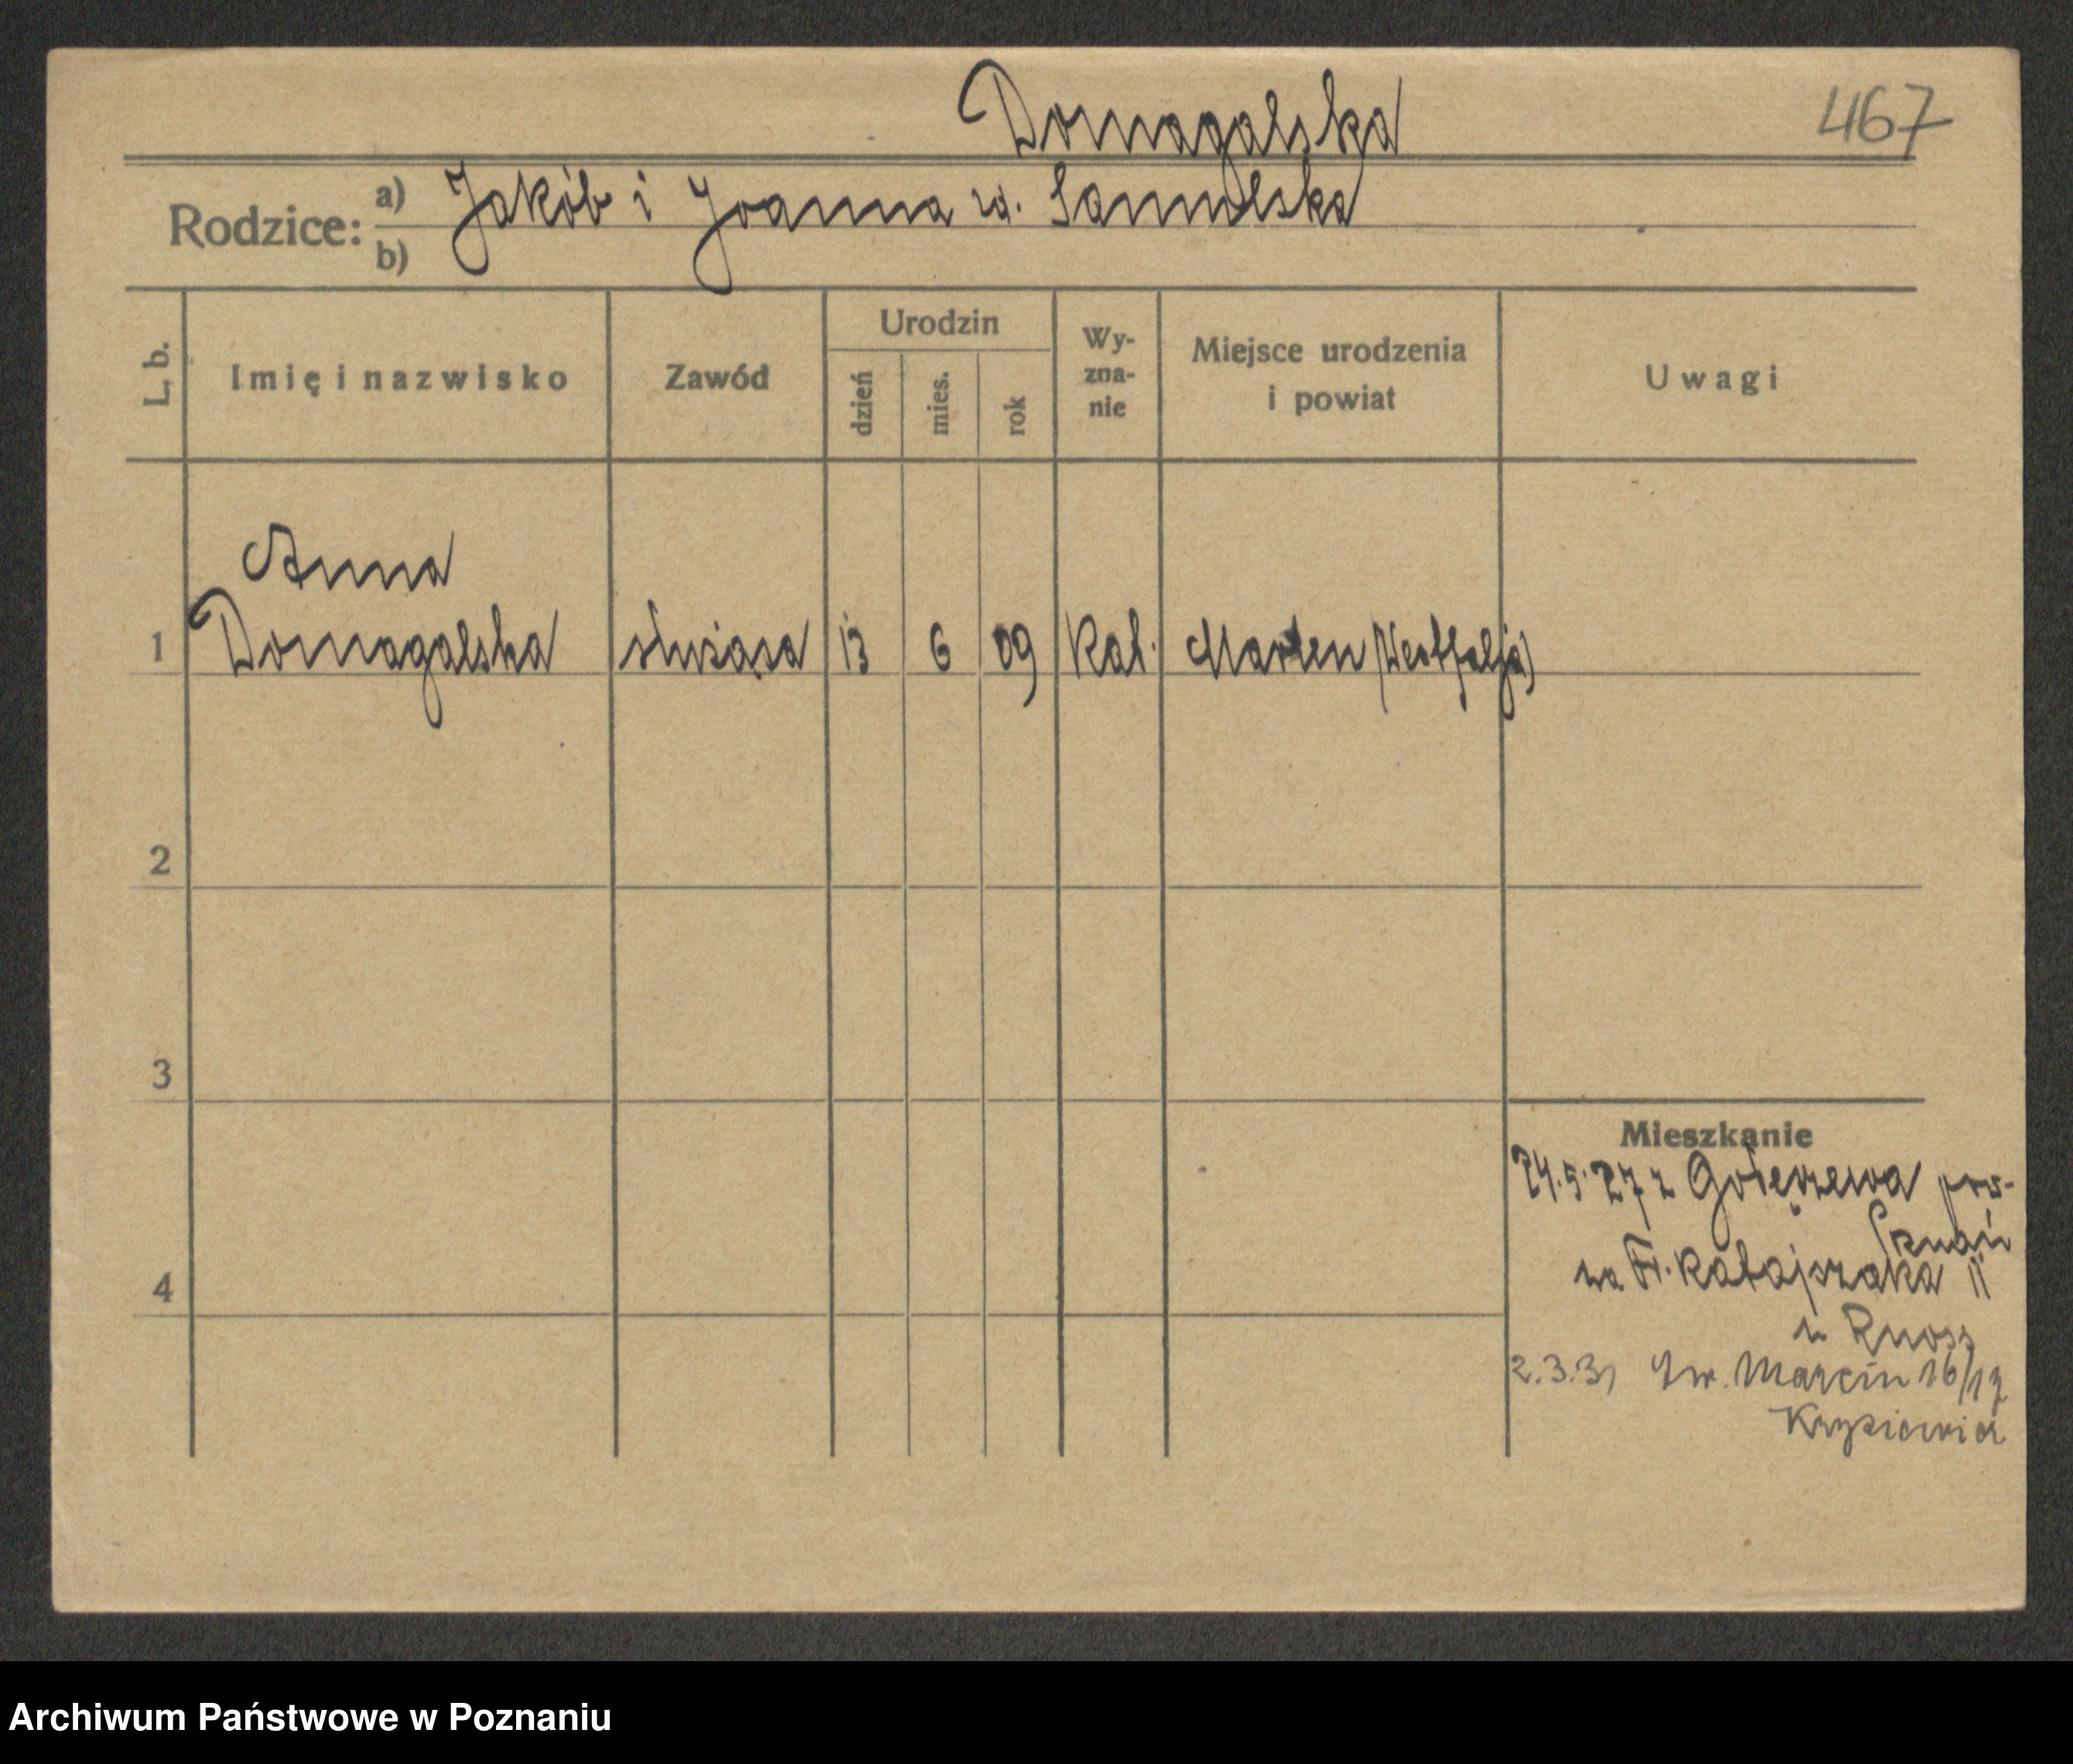 Domagalska 467
Rodzice: a) Jakób i Joanna zd. Samulska
b)
L. b. Imię i nazwisko Zawód Urodzin dzień mies. rok Wy-zna-nie Miejsce urodzenia i powiat Uwagi
Anna
1 Domagalska służąca 13 6 09 Kat. Marten (Westfalja)
2
3
Mieszkanie
24.5.27 z Golęczewa pow.
Poznań
4 na Fr. Ratajczaka 11
u Knoss
2.3.31 Św. Marcin 16/17
Krysiewicz
Archiwum Państwowe w Poznaniu